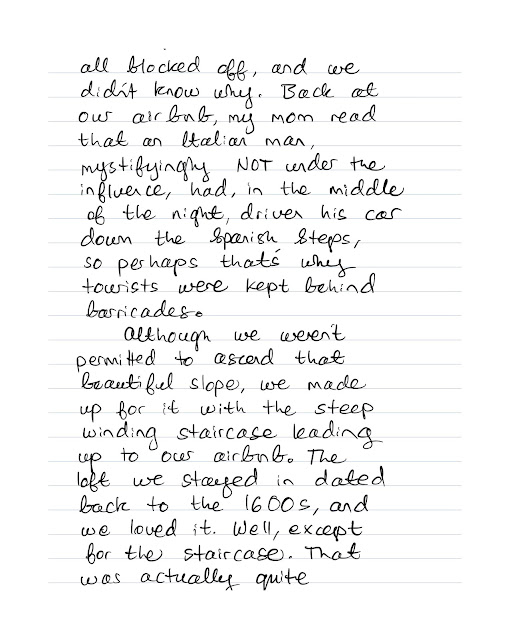 all blocked off, and we
didn't know why. Back at
our airbnb, my mom read
that an Italian man,
mystifyingly NOT under the
influence, had, in the middle
of the night, driven his car
down the Spanish Steps,
so perhaps that's why
tourists were kept behind
barricades.
Although we weren't
permitted to ascend that
beautiful slope, we made
up for it with the steep
winding staircase leading
up to our airbnb. The
loft we stayed in dated
back to the 1600s, and
we loved it. Well, except
for the staircase. That
was actually quite